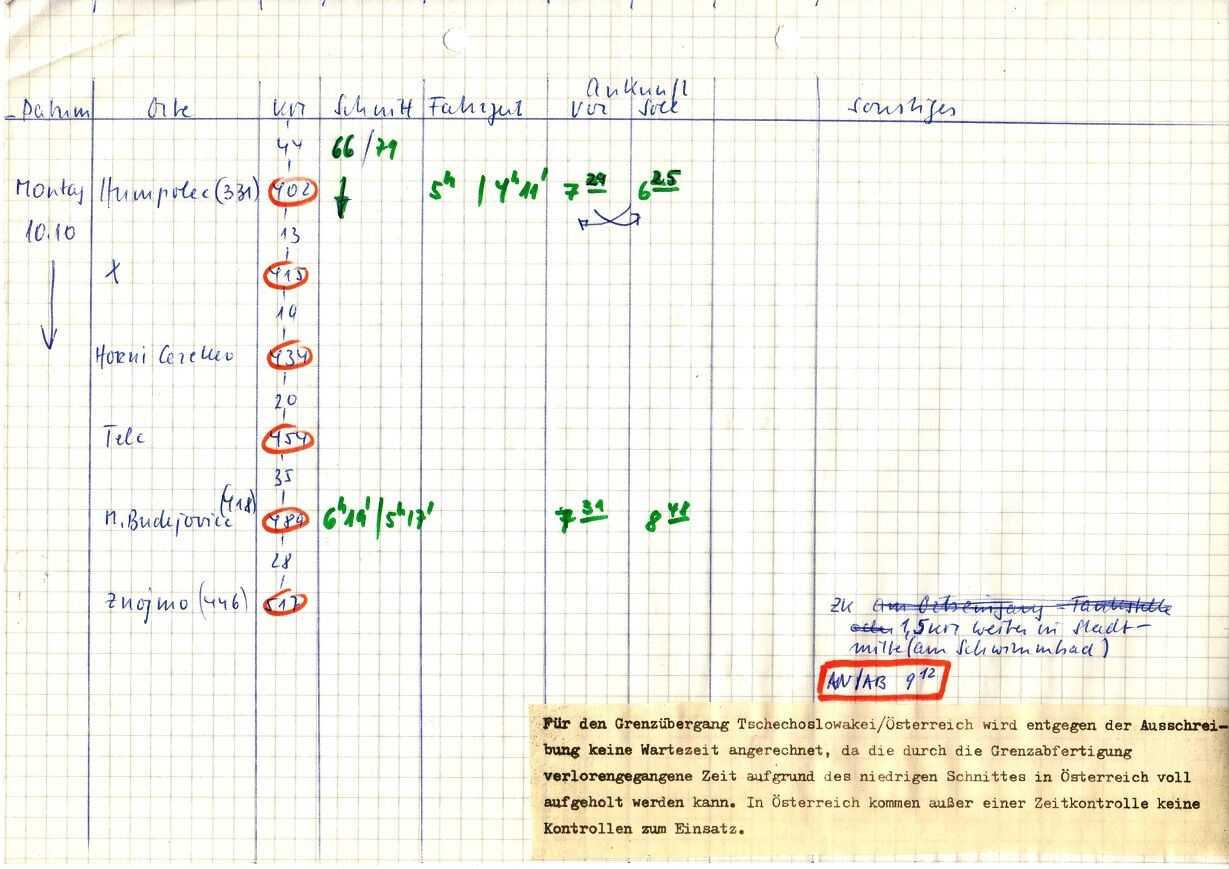 Ankunft
Datum Orte km Schnitt Fahrzeit vor Soll Sonstiges
44 66/79
Montag Humpolec (331) 402 5h / 4h 11' 7 29 6 25
10.10 13
X 415
19
Horni Cerekev 434
20
Telc 454
35
(418)
M. Budejovice 489 6h 19' / 5h 17' 7 31 8 48
28
Znojmo (446) 517 ZK am Ortseingang - Tankstelle
oder 1,5 km weiter in Stadt-
mitte (am Schwimmbad)
AN/AB 9 12
Für den Grenzübergang Tschechoslowakei/Österreich wird entgegen der Ausschrei-
bung keine Wartezeit angerechnet, da die durch die Grenzabfertigung
verlorengegangene Zeit aufgrund des niedrigen Schnittes in Österreich voll
aufgeholt werden kann. In Österreich kommen außer einer Zeitkontrolle keine
Kontrollen zum Einsatz.